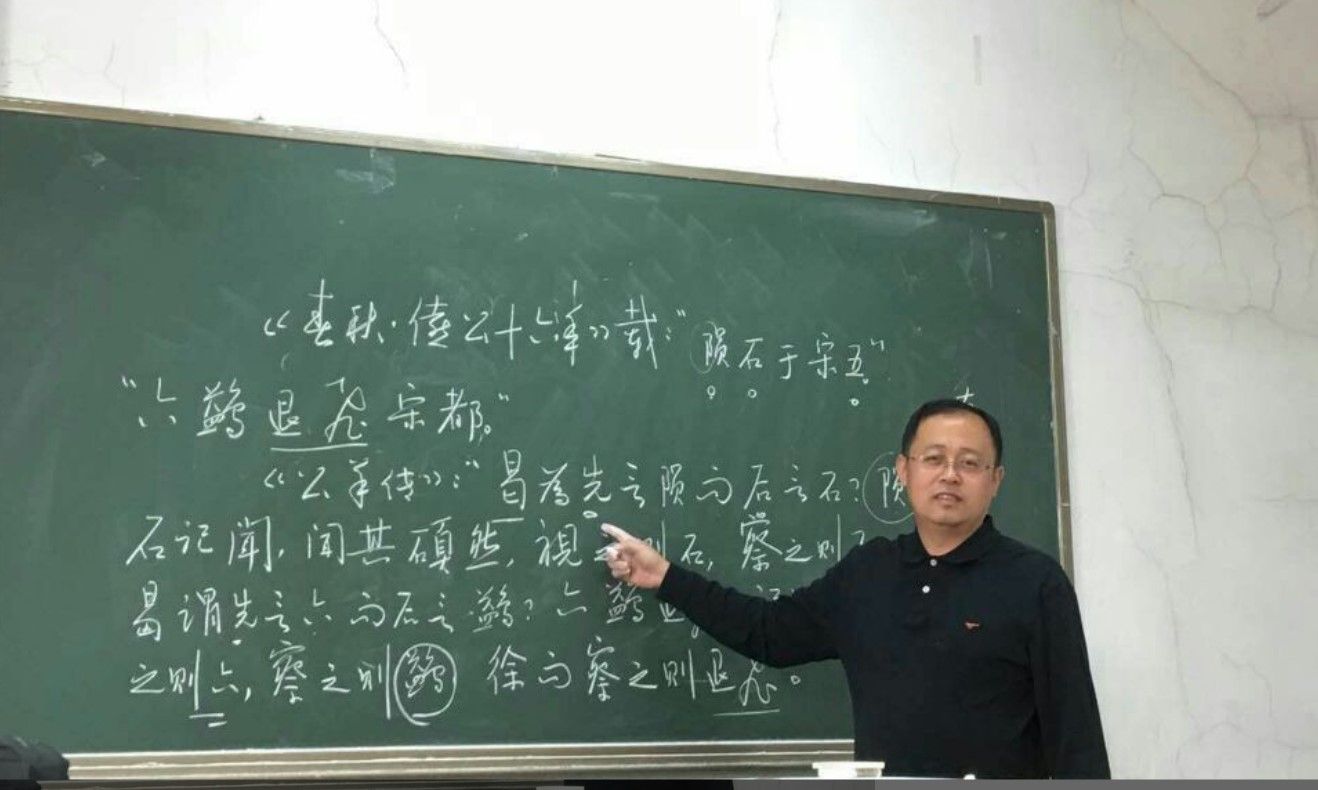 《春秋·僖公十六年》载:"陨石于宋五"
"六鹢退飞宋都。"
《公羊传》:"曷為先言陨而后言石?陨
石记聞,闻其磌然,視之则石,察之则
曷谓先言六而后言鹢?六鹢退
之则六,察之则鹢 徐而察之则退飞。